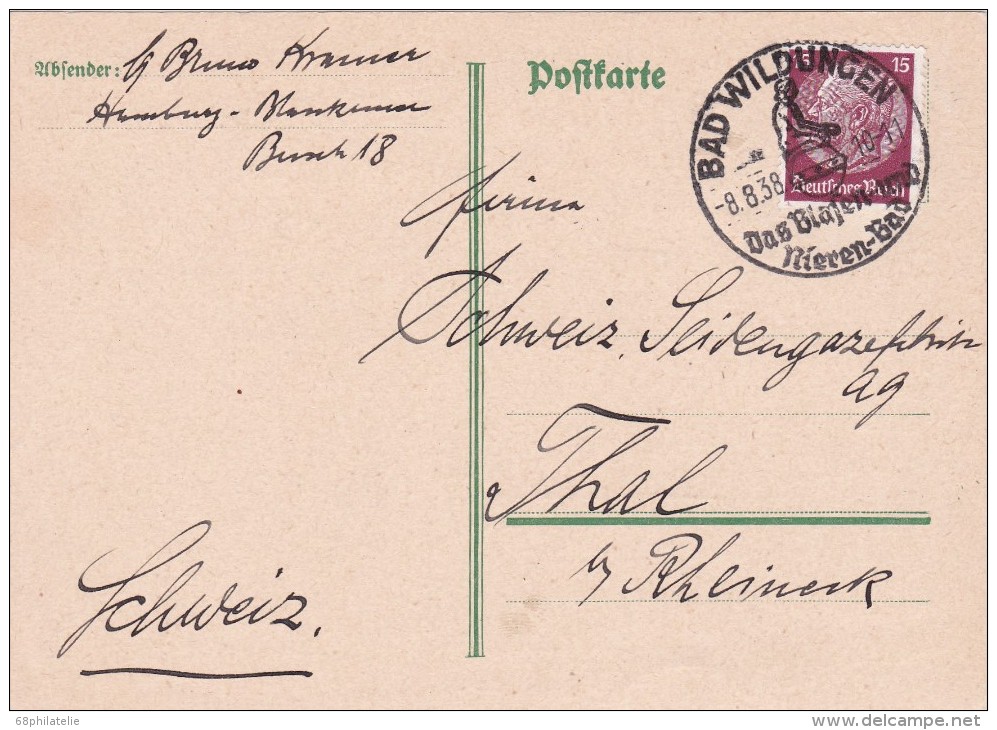 Absender: Bruno Kramer
Hamburg - Blankenese
18
Postkarte
15
Deutsches Reich
BAD WILDUNGEN
-8.8.38 10-11
Das Blasen- und
Nieren-Bad
Firma
Schweiz. Seidengazefabrik
AG
Thal
b/ Rheineck
Schweiz.
68philatelie
delcampe.net